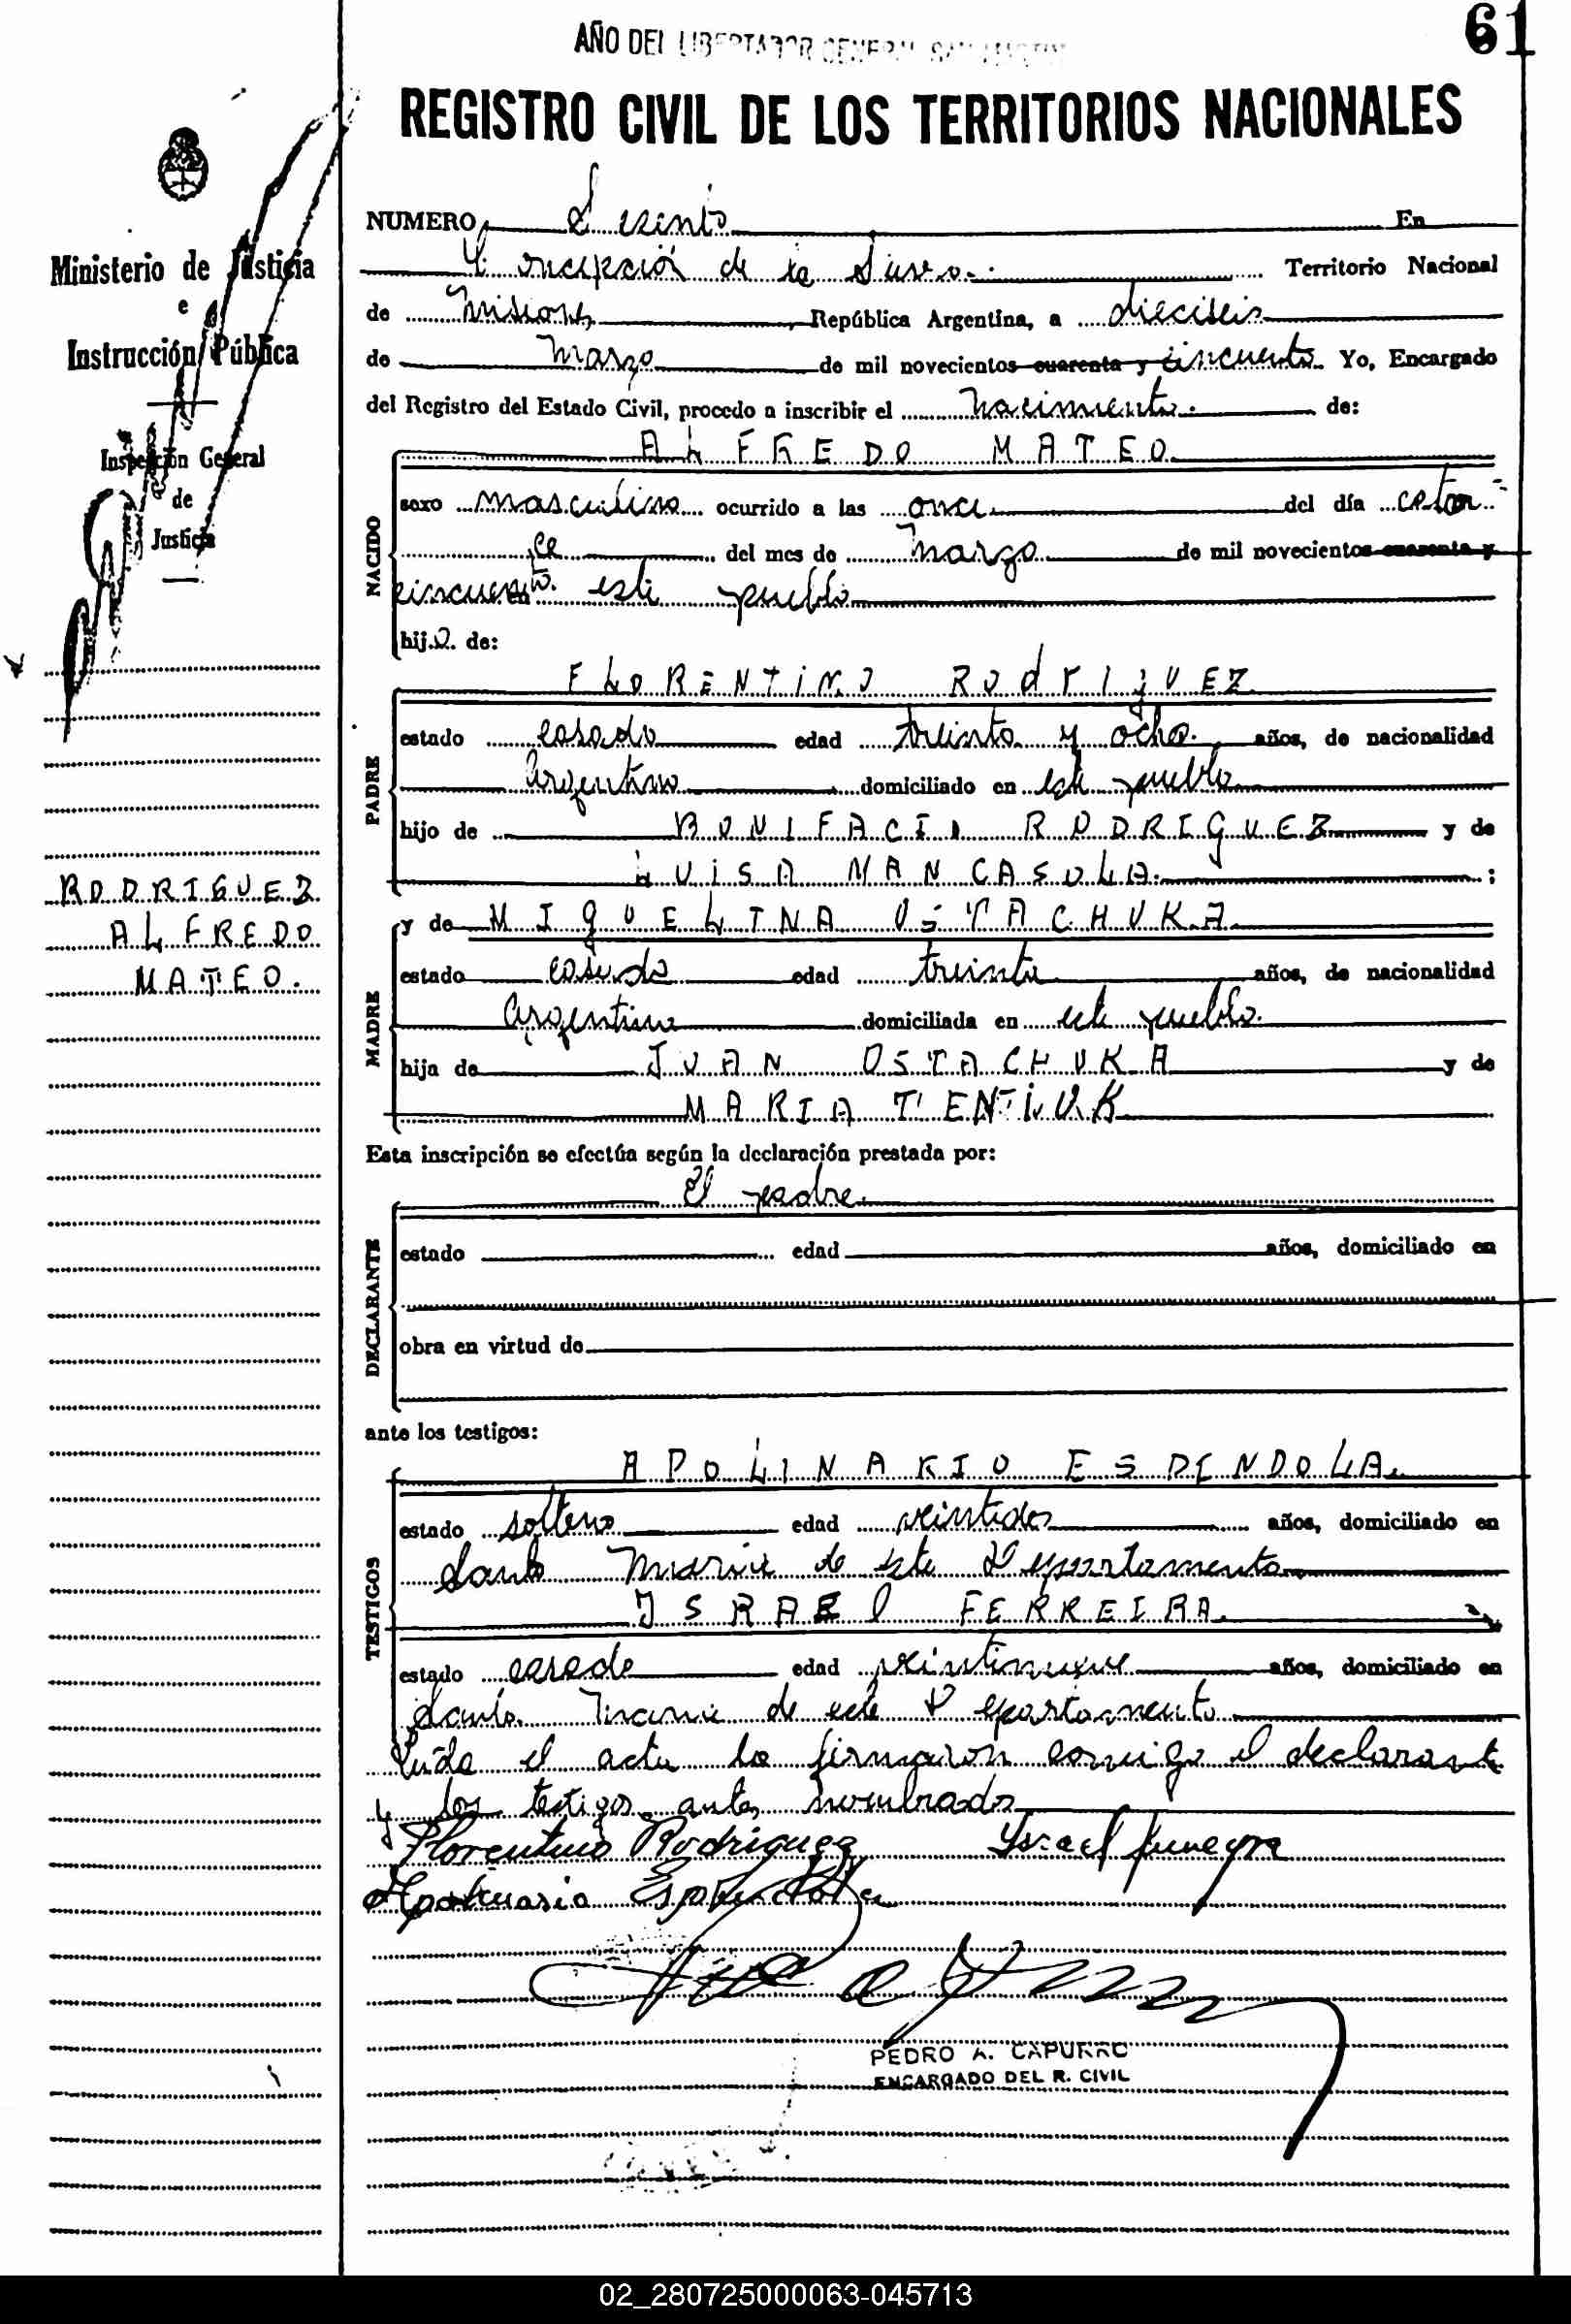 61
AÑO DEL LIBERTADOR GENERAL SAN MARTIN
REGISTRO CIVIL DE LOS TERRITORIOS NACIONALES
Ministerio de Justicia
e
Instrucción Pública
Inspección General
de
Justicia
RODRIGUEZ
ALFREDO
MATEO.
NUMERO Sesenta En
Concepción de la Sierra. Territorio Nacional
de Misiones República Argentina, a dieciseis
de Marzo de mil novecientos cuarenta y cincuenta Yo, Encargado
del Registro del Estado Civil, procedo a inscribir el Nacimiento. de:
NACIDO
ALFREDO MATEO
sexo masculino ocurrido a las once del día cator-
ce del mes de Marzo de mil novecientos cuarenta y
cincuenta en este pueblo
hijo de:
PADRE
FLORENTINO RodrIgUEZ
estado casado edad treinta y ocho. años, de nacionalidad
Argentino domiciliado en este pueblo
hijo de BONIFACIO RODRIGUEZ y de
LUISA MANCASOLA. ;
MADRE
y de MIGUELINA OSTACHUKA
estado casada edad treinta años, de nacionalidad
Argentina domiciliada en este pueblo.
hija de JUAN OSTACHUKA y de
MARIA TENTIUK
Esta inscripción se efectúa según la declaración prestada por:
DECLARANTE
El padre
estado edad años, domiciliado en
obra en virtud de
ante los testigos:
TESTIGOS
APOLINARIO ESPINDOLA.
estado soltero edad veintidos años, domiciliado en
Santa Maria de este Departamento
ISRAEl FERREIRA.
estado casado edad veintinueve años, domiciliado en
Santa Maria de este Departamento
Leida el acta la firmaron conmigo el declarante
y los testigos antes nombrados
Florentino Rodriguez Ysrael
Apolinario Espindola
PEDRO A. CAPURRO
ENCARGADO DEL R. CIVIL
02_280725000063-045713